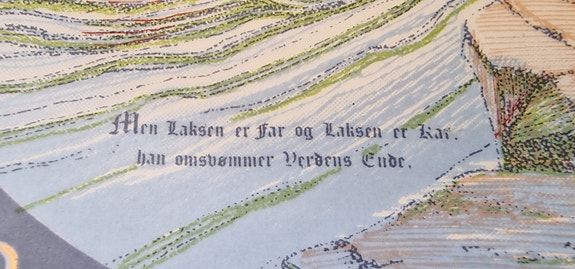 Men Laksen er Far og Laksen er Kar.
han omsvømmer Verdens Ende.